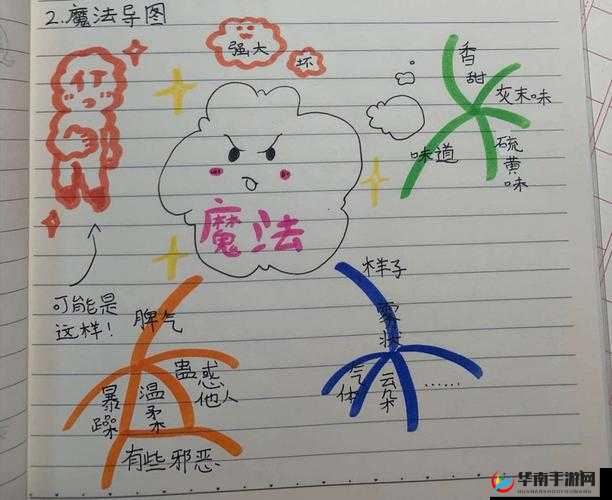 2.魔法导图
强大
坏
魔法
可能是
这样!
香
甜
灰末味
味道
硫
黄
味
脾气
暴
躁
温
柔
蛊惑
他人
有些邪恶
样子
雾
状
气
体
云
朵
……
华南手游网
HUANANSHOUYOUWANG